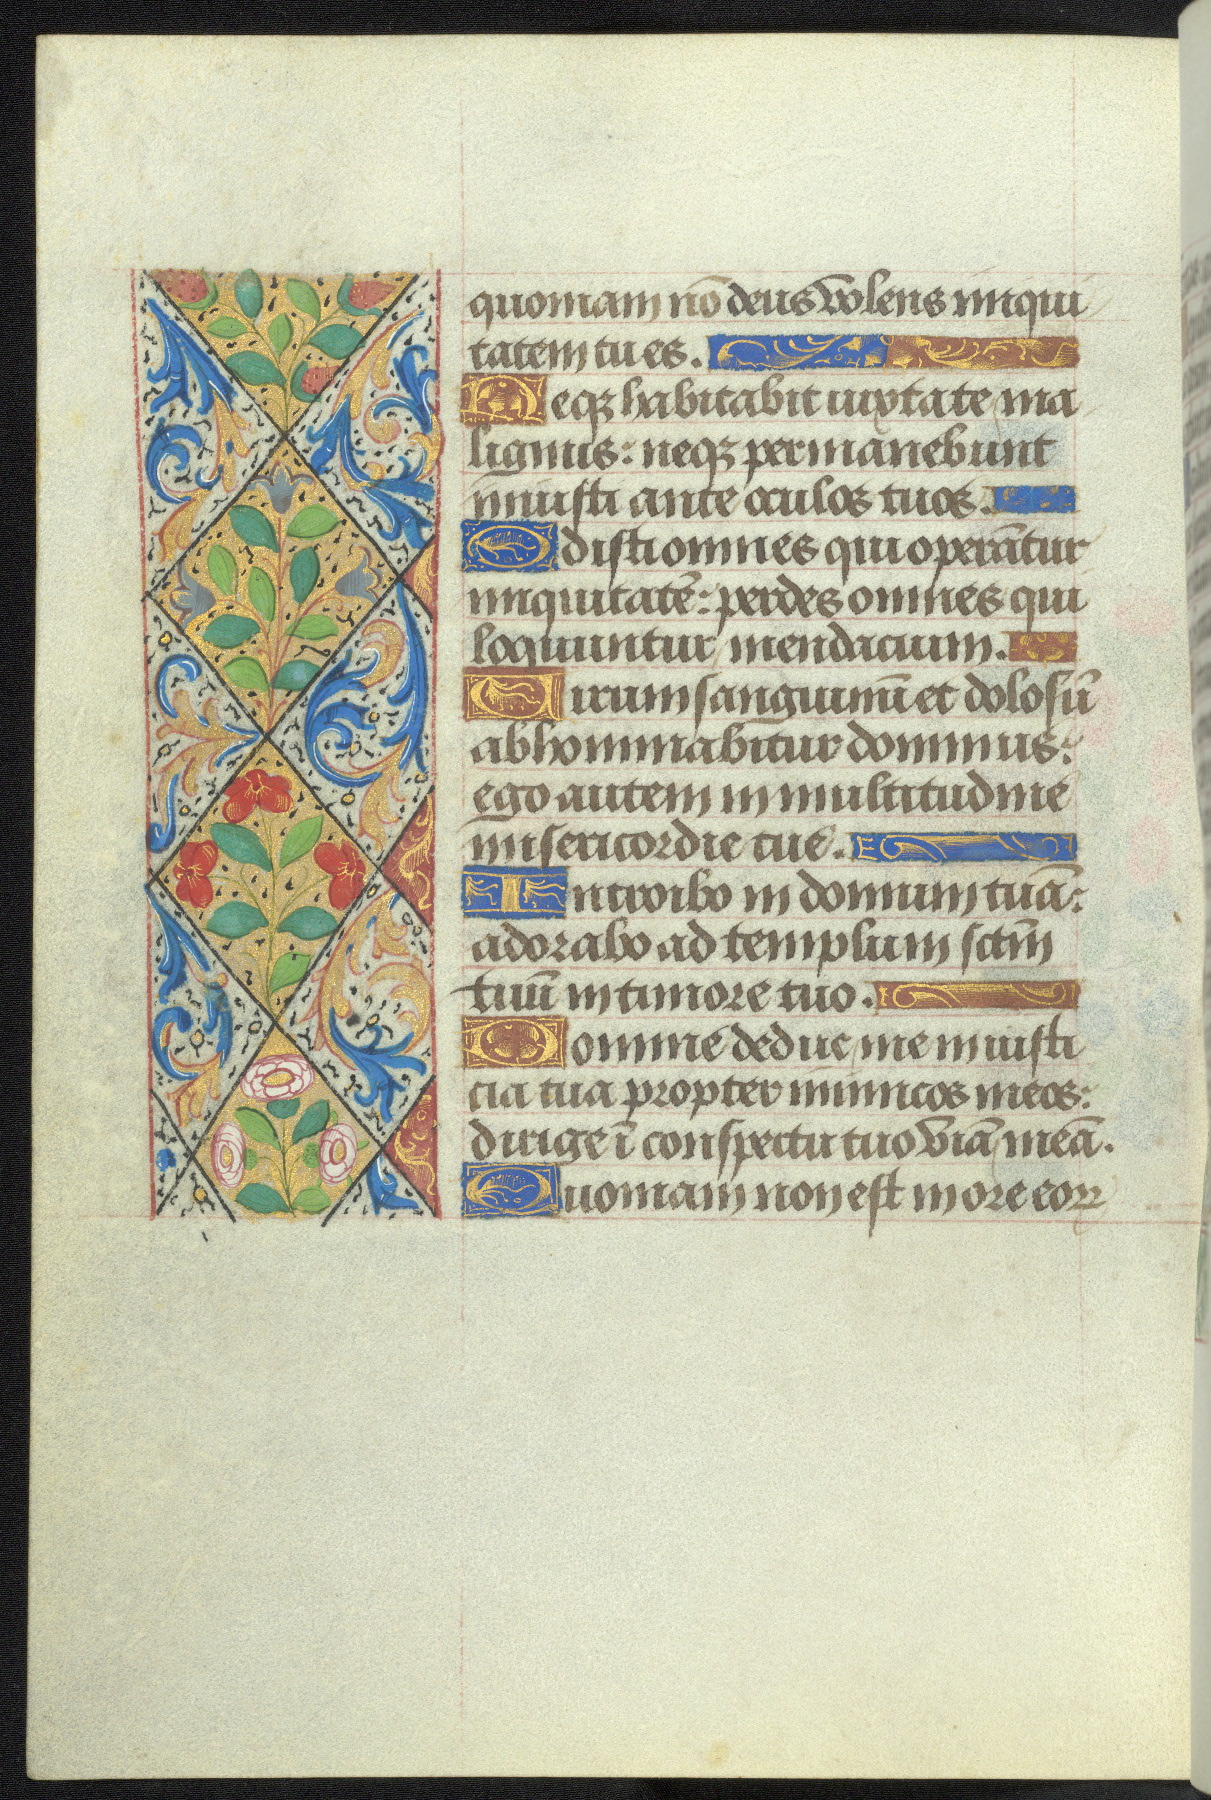 quoniam nō deus volens iniqui
tatem tu es.
Neqꝫ habitabit iuxta te ma
lignus: neqꝫ permanebunt
iniusti ante oculos tuos.
Odisti omnes qui operātur
iniquitatē: perdes omnes qui
loquuntur mendacium.
Uirum sanguinū et dolosū
abhominabitur dominus:
ego autem in multitudine
misericordie tue.
Introibo in domum tuā:
adorabo ad templum sctm̄
tuū in timore tuo.
Domine deduc me in iusti
cia tua propter inimicos meos:
dirige ī conspectu tuo viā meā.
Quoniam non est in ore eorꝝ